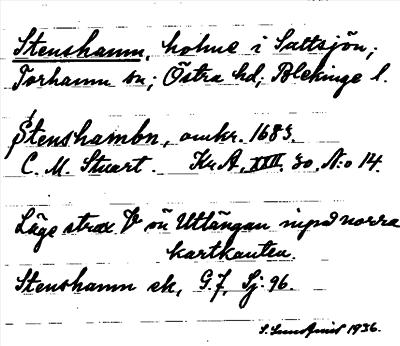 Stenshamn, holme i Saltsjön;
Torhamn sn; Östra hd; Blekinge l.
Stenshambn, omkr. 1683.
C. M. Stuart. Kr A, XXII, 30, N:o 14.
Läge strax V om Utlängan inpå norra
kartkanten.
Stenshamn ek, G. J, Sj: 96.
1936.